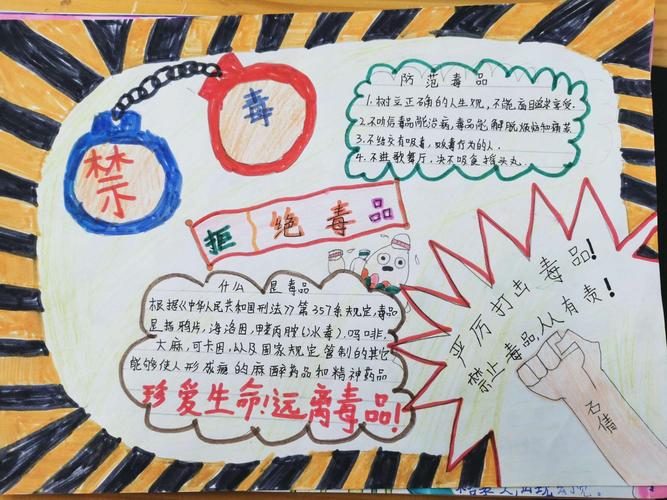 禁
毒
防范毒品
1.树立正确的人生观,不能盲目追求享受.
2.不听信毒品能治病,毒品能解脱烦恼和痛苦
3.不结交有吸毒,贩毒行为的人.
4.不进歌舞厅,决不吸食摇头丸.
拒绝毒品
什么是毒品
根据《中华人民共和国刑法》第357条规定,毒品
是指鸦片,海洛因,甲基苯丙胺(冰毒).吗啡.
大麻,可卡因,以及国家规定管制的其它
能够使人形成瘾的麻醉药品和精神药品
珍爱生命!远离毒品!
严厉打击毒品!
禁止毒品,人人有责!
石倩